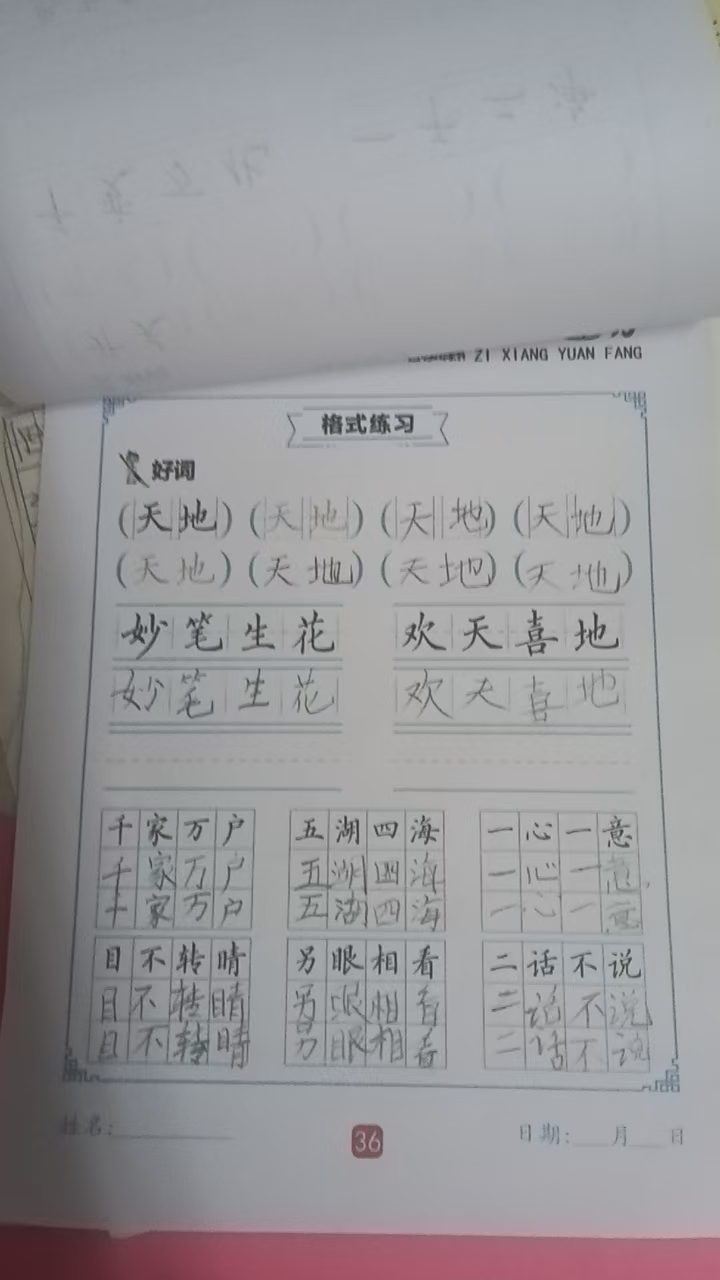 ZI XIANG YUAN FANG
格式练习
好词
(天地) (天地) (天地) (天地)
(天地) (天地) (天地) (天地)
妙笔生花 欢天喜地
妙笔生花 欢天喜地
千家万户 五湖四海 一心一意
千家万户 五湖四海 一心一意
千家万户 五湖四海 一心一意
目不转晴 另眼相看 二话不说
目不转睛 另眼相看 二话不说
目不转晴 另眼相看 二话不说
姓名: 36 日期: 月 日